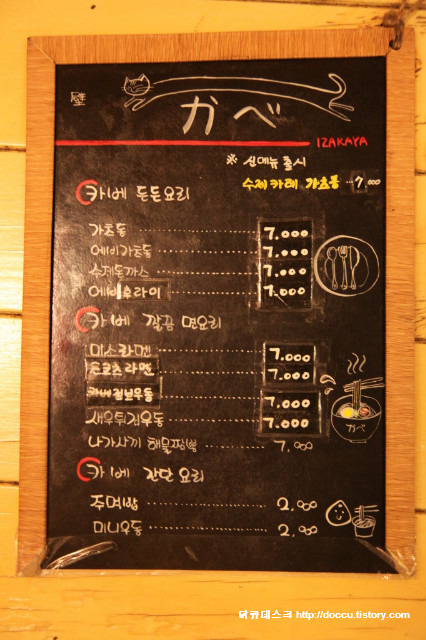 壁
かべ
IZAKAYA
※ 신메뉴 출시
수제카레 가츠동 ...7,000
카베 든든요리
가츠동 7.000
에비가츠동 7.000
수제돈까스 7.000
에비후라이 7.000
카베 깔끔 면요리
미소라멘 7.000
돈코츠라멘 7.000
카베정보우동 7.000
새우튀김우동 7.000
나가사끼 해물짬뽕 7,000
카베 간단 요리
주먹밥 2,000
미니우동 2,000
かべ
닥큐데스크 http://doccu.tistory.com